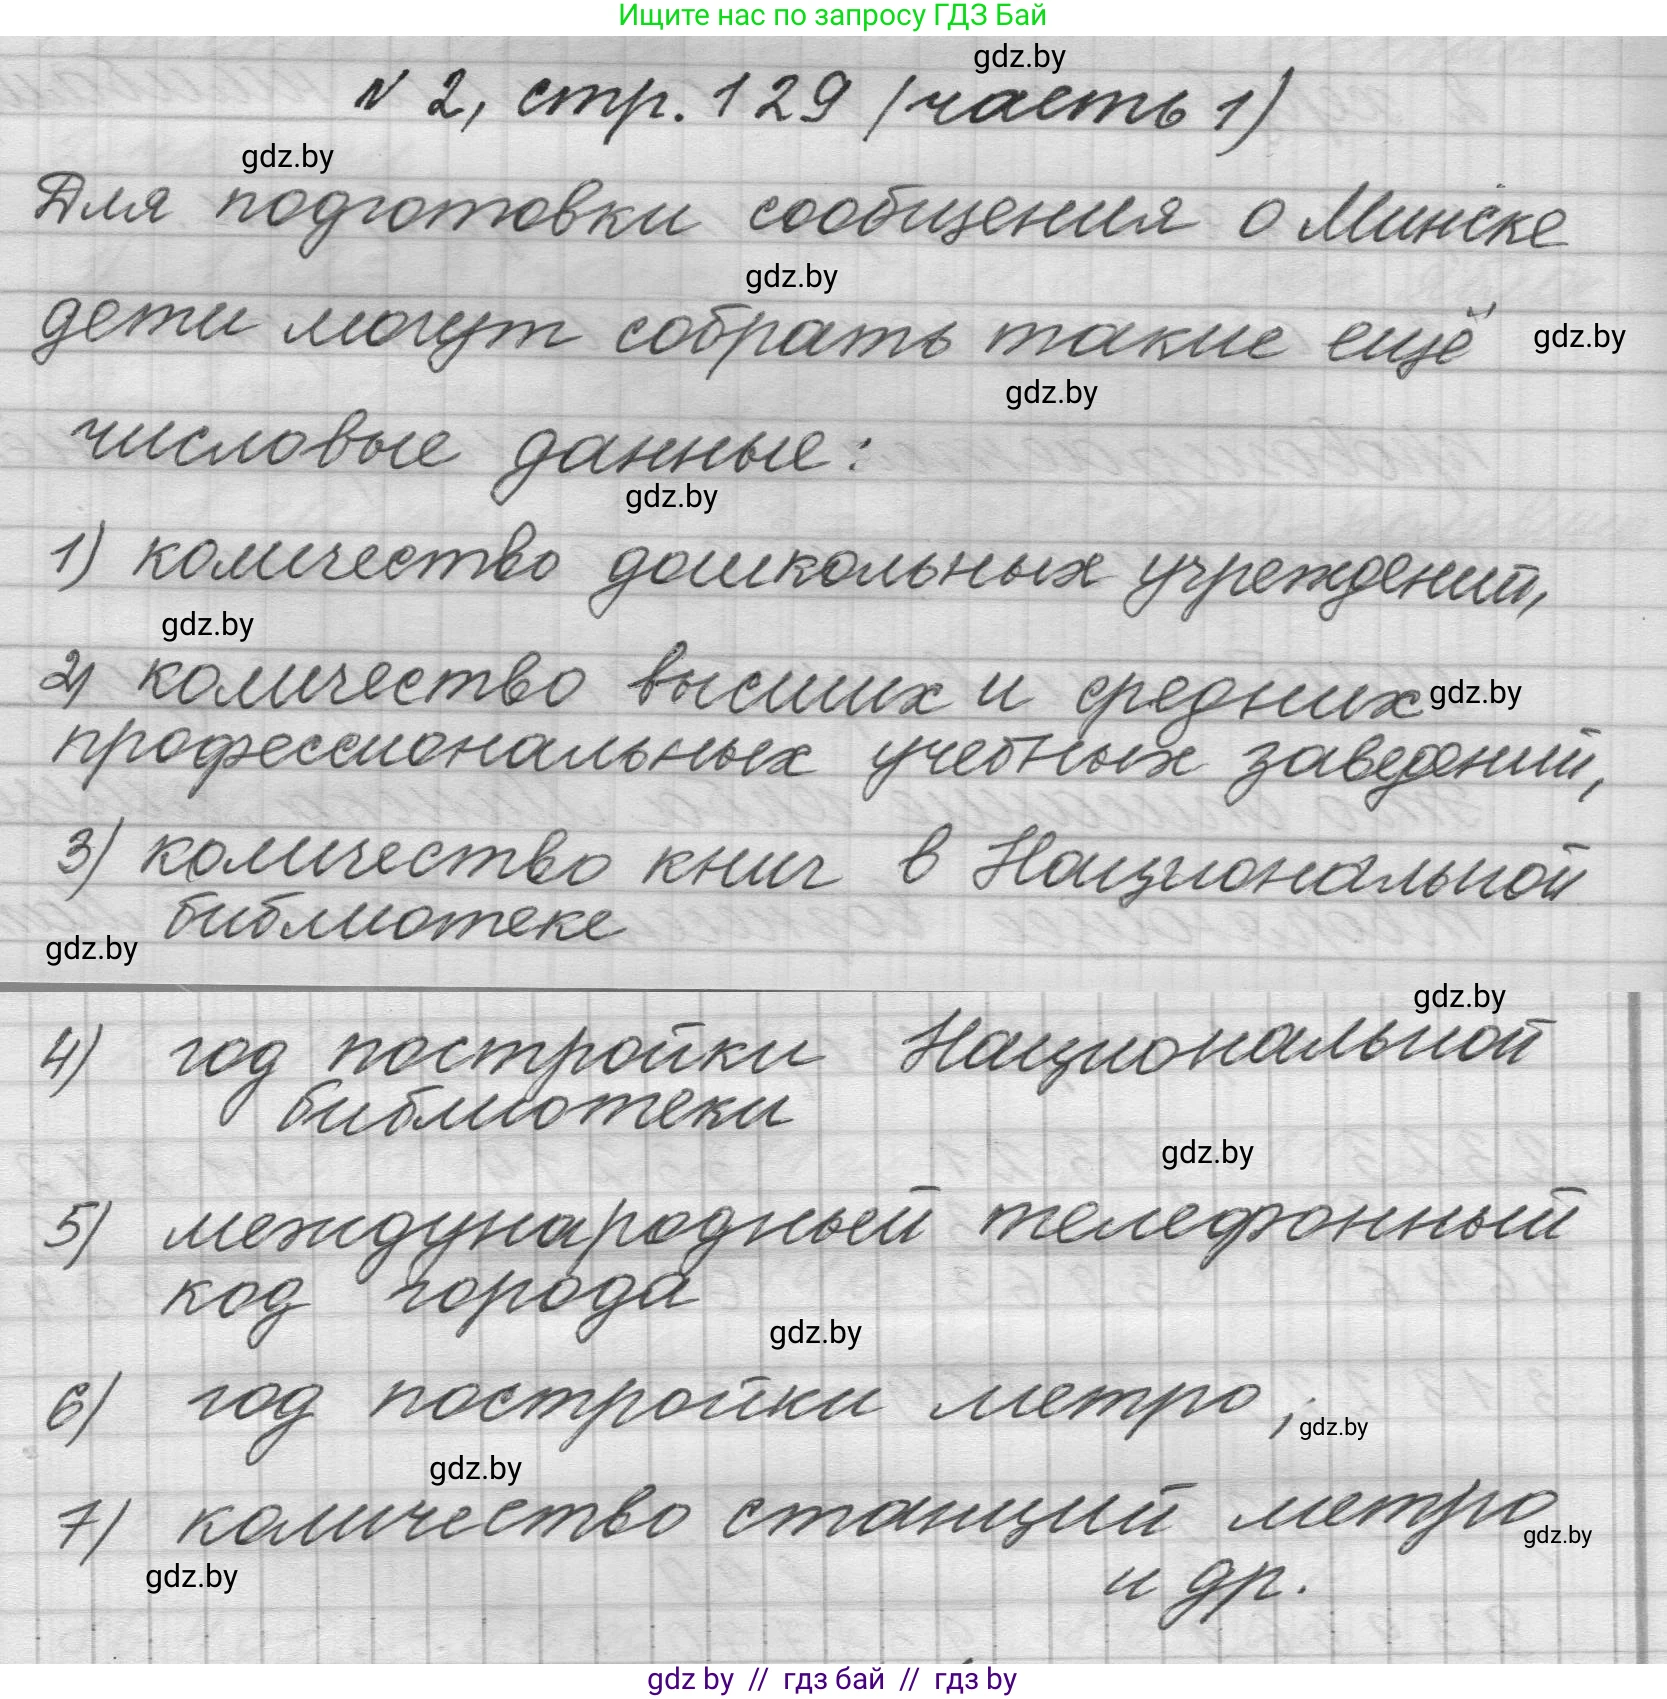 Ищите нас по запросу ГДЗ Бай
gdz.by
N 2, стр. 129 (часть 1)
gdz.by
Для подготовки сообщения о Минске
gdz.by
дети могут собрать такие ещё
gdz.by
gdz.by
числовые данные:
gdz.by
1) количество дошкольных учреждений,
gdz.by
2) количество высших и средних
gdz.by
профессиональных учебных заведений,
3) количество книг в Национальной
библиотеке
gdz.by
gdz.by
4) год постройки Национальной
библиотеки
gdz.by
5) международный телефонный
код города
gdz.by
6) год постройки метро;
gdz.by
gdz.by
7) количество станций метро
gdz.by
и др.
gdz.by
gdz by // гдз бай // гдз by